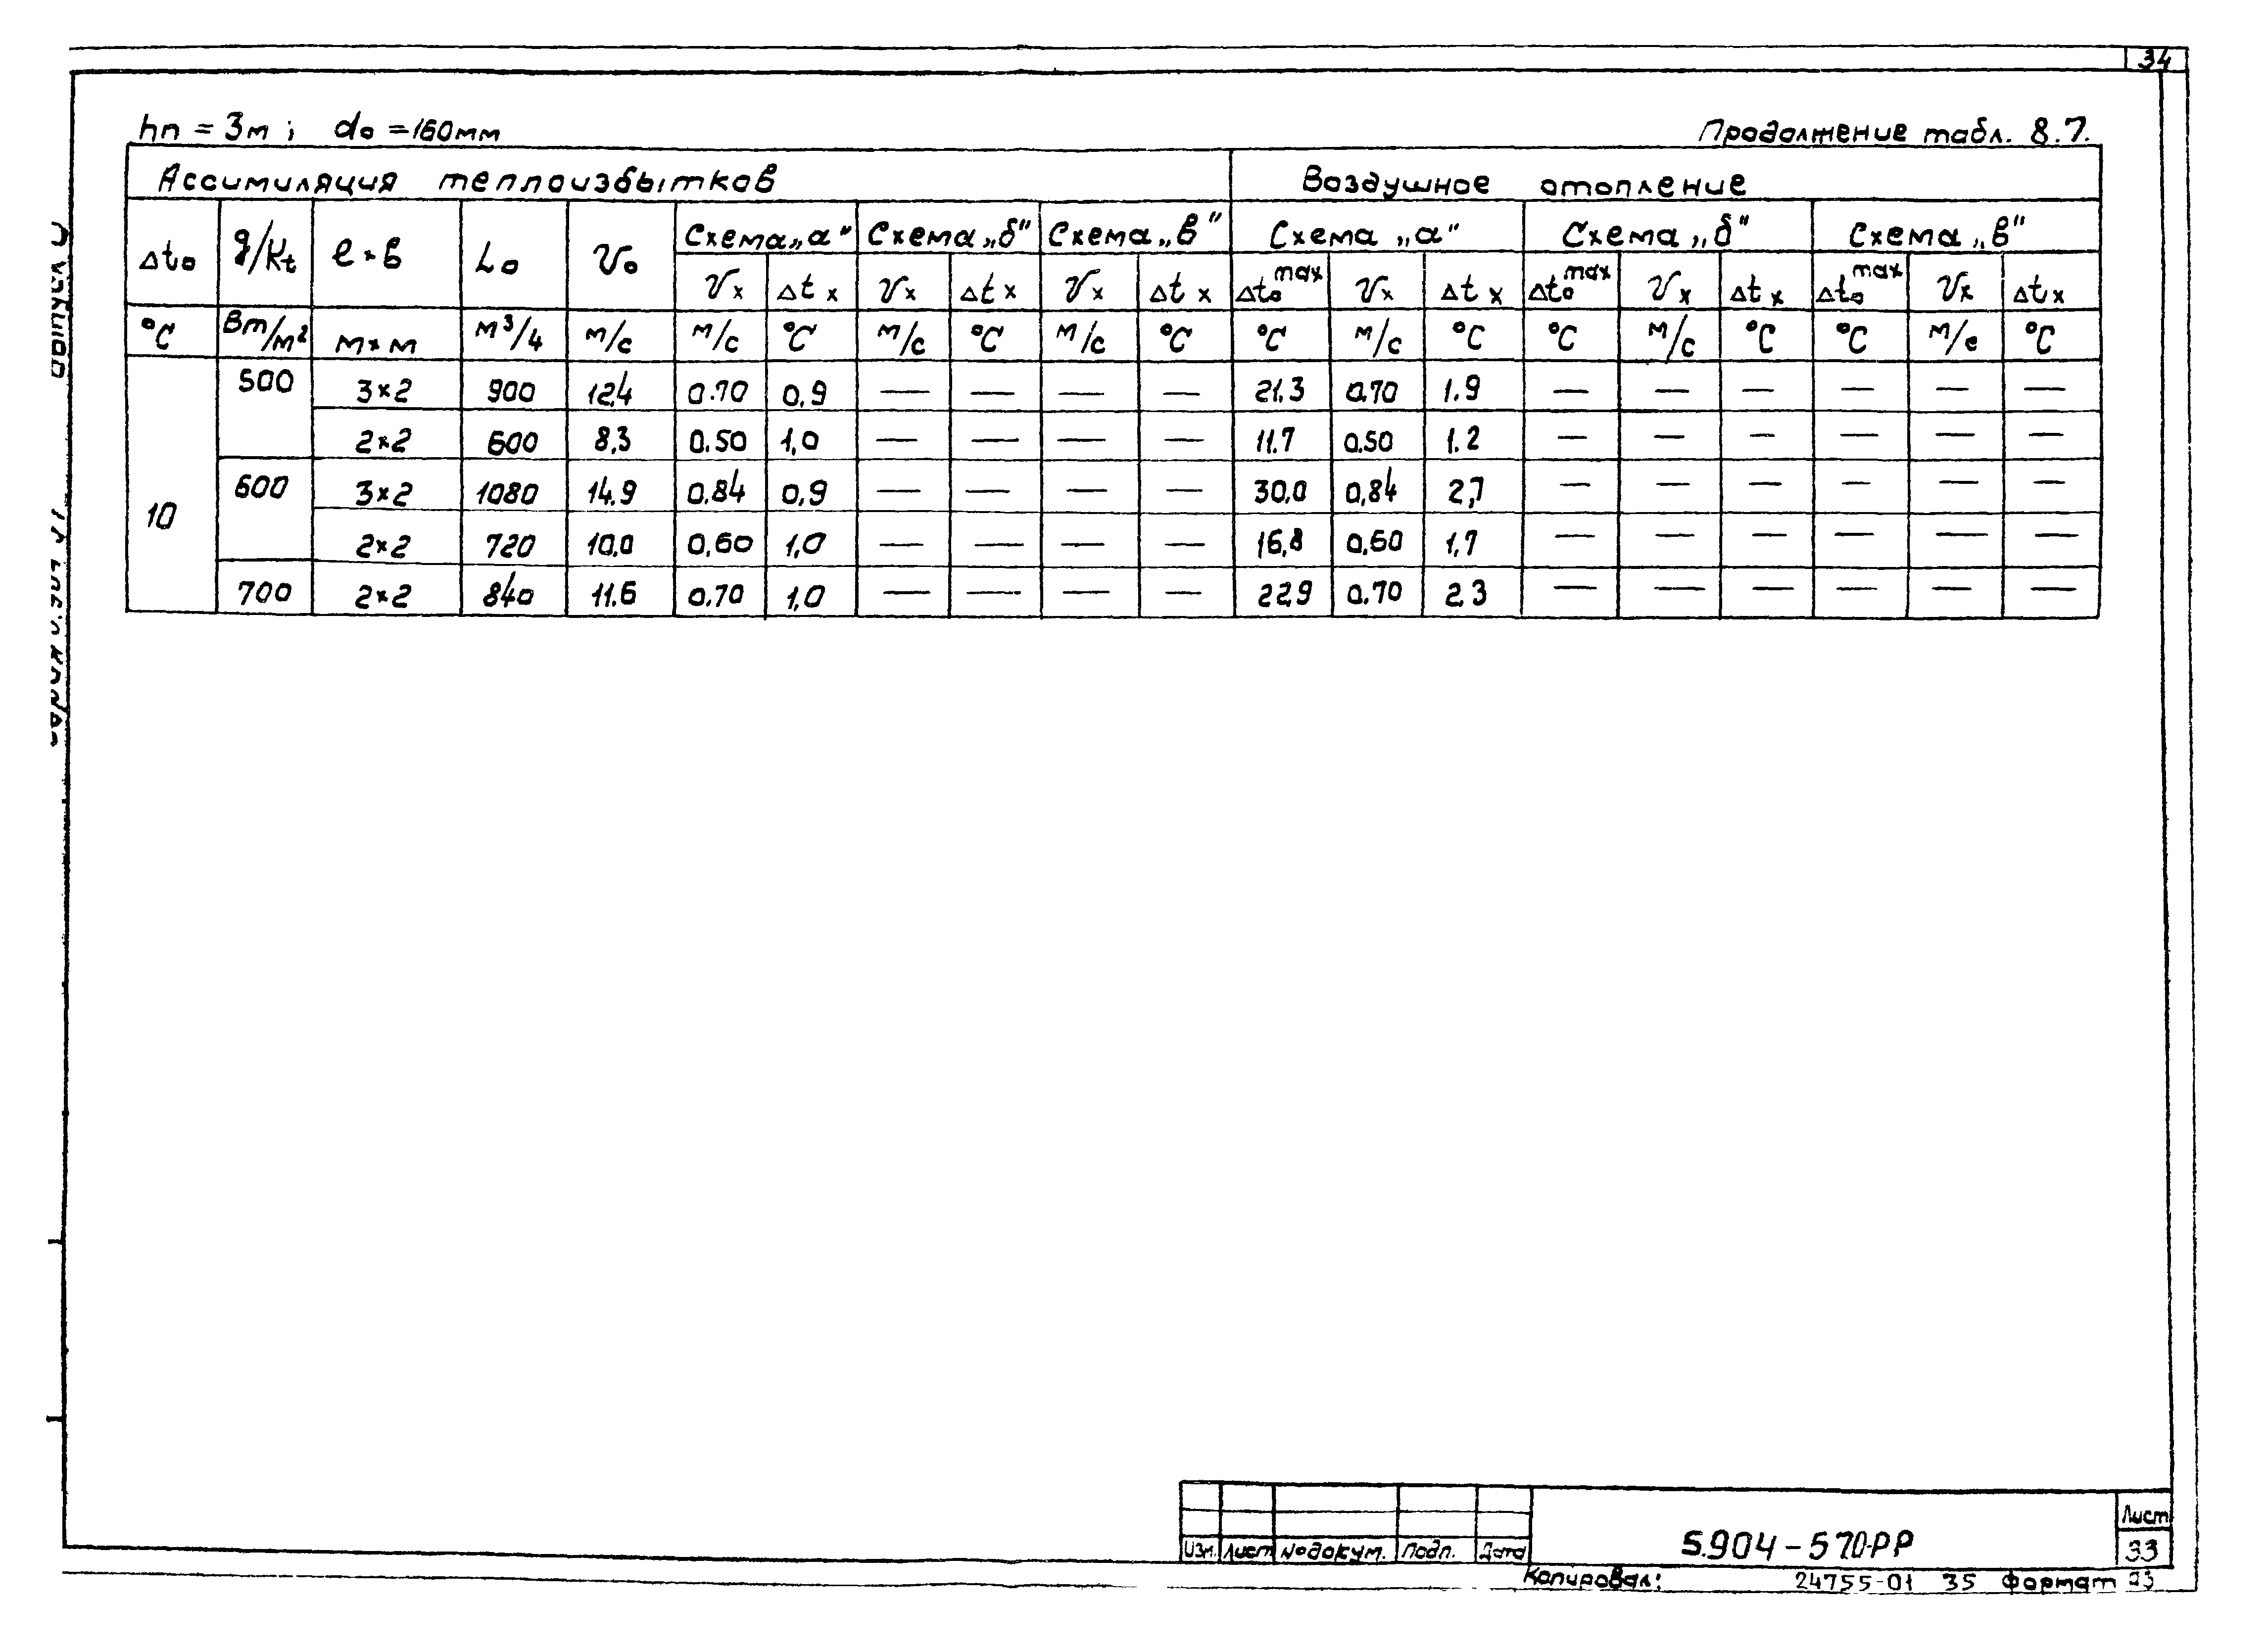 34
hп = 3м ; d₀ = 160мм
Продолжение табл. 8.7.
Ассимиляция теплоизбытков Воздушное отопление
Δt₀ g/Kt ℓ×в L₀ V₀ Схема „а" Схема „б" Схема „в" Схема „а" Схема „б" Схема „в"
Vx Δtx Vx Δtx Vx Δtx Δt₀max Vx Δtx Δt₀max Vx Δtx Δt₀max Vx Δtx
°C Вт/м² м×м м³/ч м/с м/с °C м/с °C м/с °C °C м/с °C °C м/с °C °C м/с °C
10
500 3×2 900 12,4 0.70 0,9 — — — — 21.3 0,70 1.9 — — — — — —
2×2 600 8,3 0.50 1,0 — — — — 11.7 0.50 1.2 — — — — — —
600 3×2 1080 14.9 0,84 0,9 — — — — 30,0 0,84 2,7 — — — — — —
2×2 720 10,0 0,60 1,0 — — — — 16,8 0,60 1,7 — — — — — —
700 2×2 840 11.6 0.70 1,0 — — — — 22,9 0.70 2,3 — — — — — —
5.904-57 0-РР
Лист
33
Изм. Лист №докум. Подп. Дата
Копировал: 24755-01 35 Формат